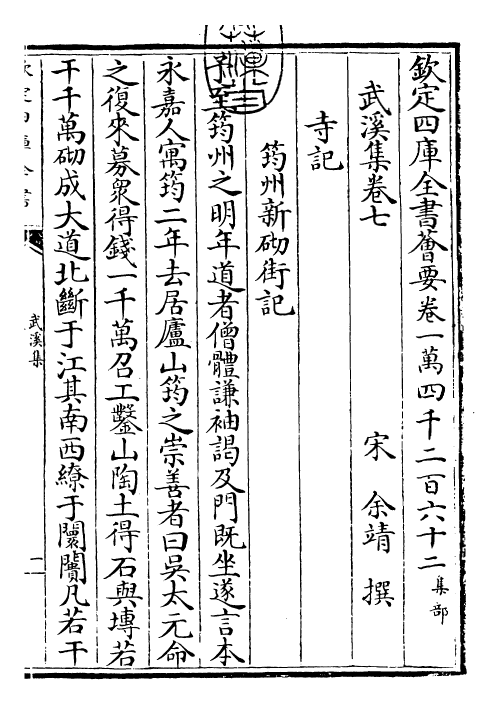 欽定四庫全書薈要卷一萬四千二百六十二 集部
武溪集卷七
宋 余靖 撰
寺記
筠州新砌街記
予至筠州之明年道者僧體謙袖謁及門既坐遂言本
永嘉人寓筠二年去居廬山筠之崇善者曰吳太元命
之復來募衆得錢一千萬召工鑿山陶土得石與塼若
干千萬砌成大道北斷于江其南西繚于闤闠凡若干
欽定四庫全書
武溪集
一